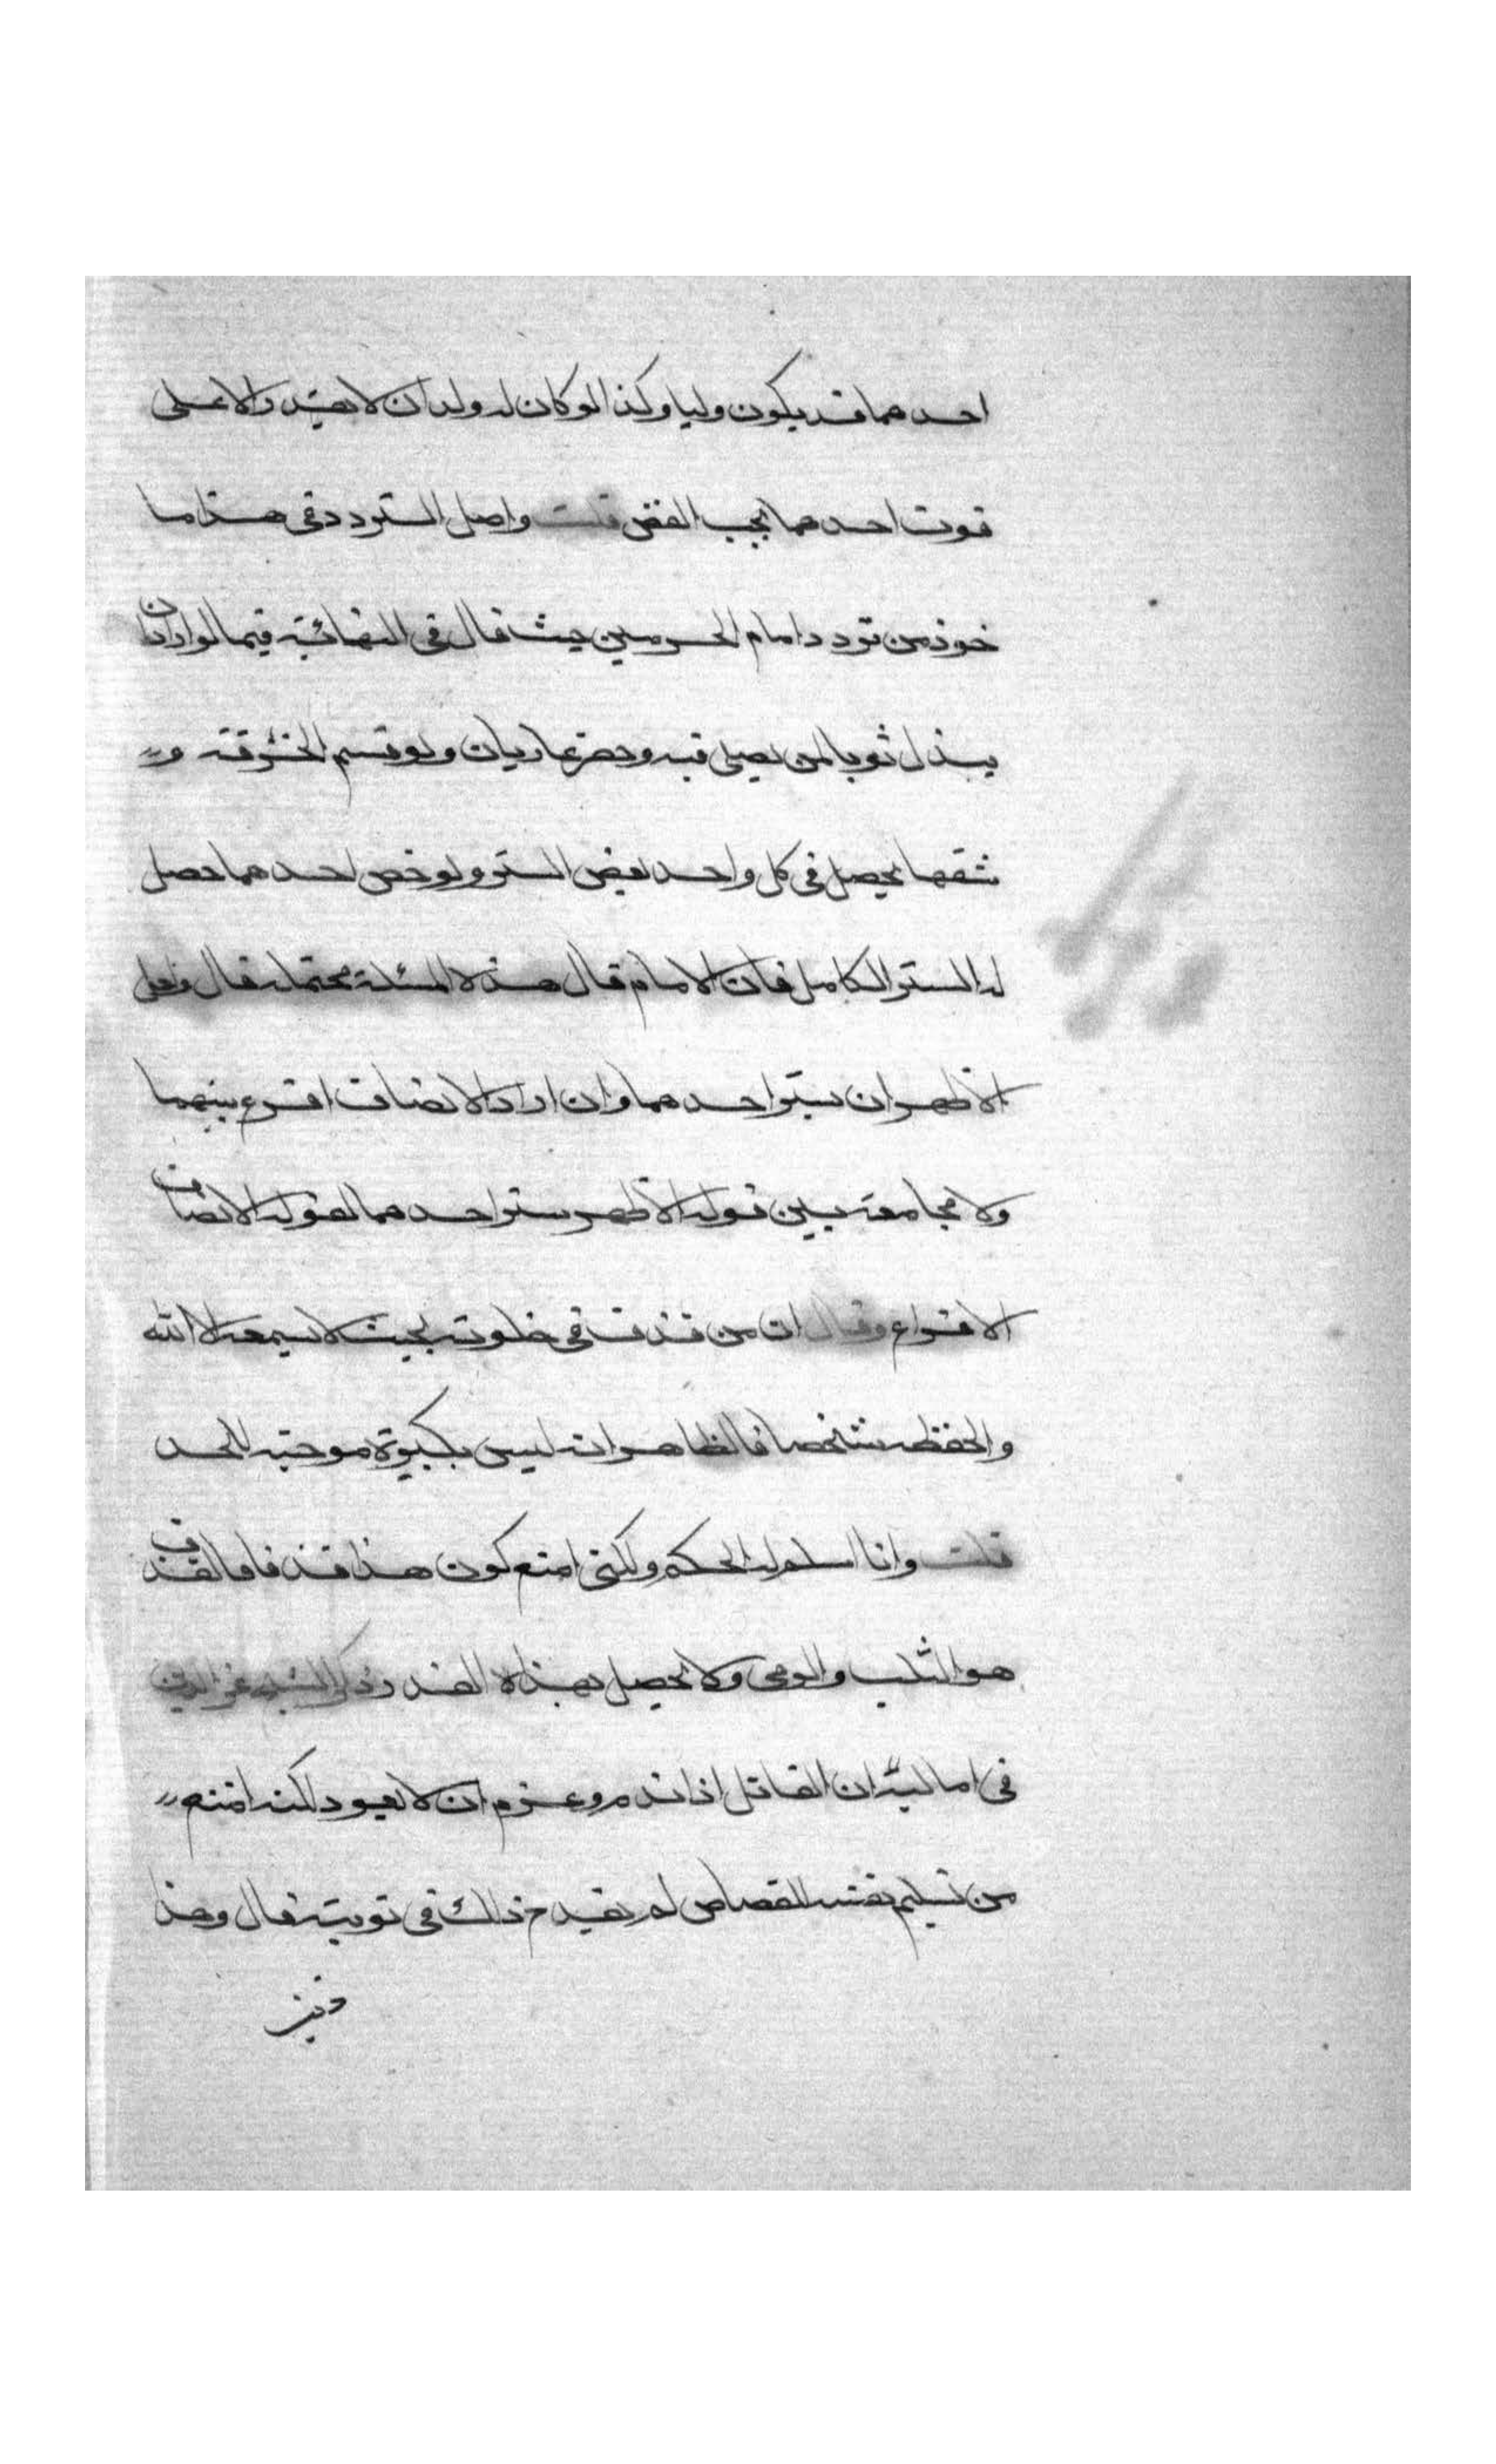 احدهما قد يكون وليا وكذا لو كان له ولدان لا يقيد والا على
قوت احدهما يجب الفض قلت واصل التردد في هذا ما
خوذ من تردد امام الحرمين حيث قال في النهائية فيما لو اراد ان
يبذل ثوبا لمن يصلى فيه وحضر عاريان ولو قسم الخرقة و
شقها يحصل في كل واحد بعض الستر ولو خص احدهما حصل
له الستر الكامل فان الامام قال هذه المسئلة محتملة قال ولعل
الاظهر ان يستر احدهما وان اراد الانصاف اقرع بينهما
ولا مجامعة بين قوله الاظهر ستر احدهما لقوله الانصاف
الاقراع وقال ان من قذف في خلوته بحيث لا يسمعه الا الله
والحفظه شخصا فالظاهر انه ليس بكبيرة موجبة للحد
قلت وانا اسلم له الحكم ولكني امنع كون هذا قذفا فالقذف
هو الثلب والرمى ولا يحصل بهذا القدر وذكر الشيخ عز الدين
في اماليه ان القاتل اذا ندم وعزم ان لا يعود لكنه امتنع
من تسليم نفسه للقصاص لم يقدح ذلك في توبته قال وهذا